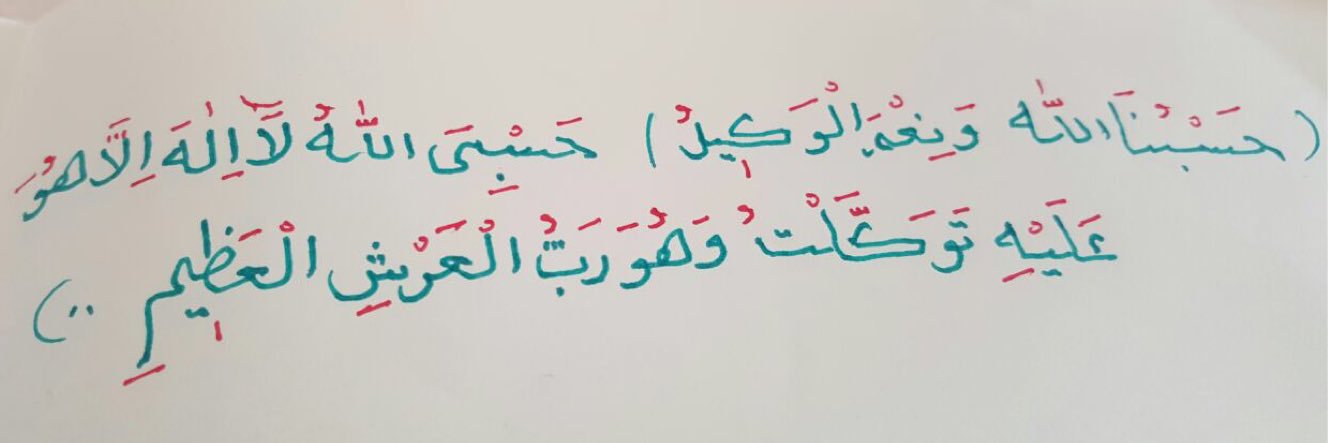 (حَسْبُنَا اللّٰه وَنِعْمَ الْوَكِيلُ) حَسْبِىَ اللّٰهُ لَآ اِلٰهَ اِلَّا هُوَ
عَلَيْهِ تَوَكَّلْتُ وَهُوَ رَبُّ الْعَرْشِ الْعَظِيمِ ..)